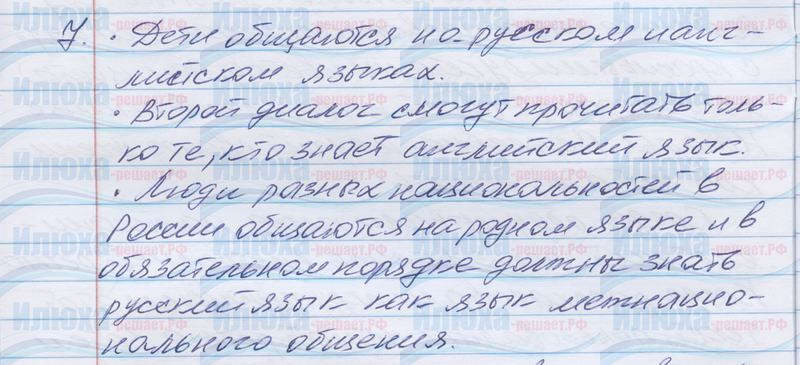 7. • Дети общаются на русском и анг-
лийском языках.
• Второй диалог смогут прочитать толь-
ко те, кто знает английский язык.
• Люди разных национальностей в
России общаются на родном языке и в
обязательном порядке должны знать
русский язык как язык межнацио-
нального общения.
Илюха-решает.РФ